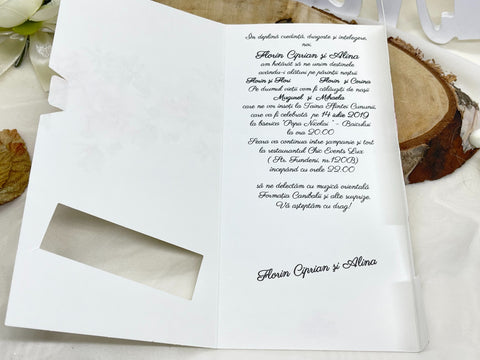 În deplină credință, dragoste și înțelegere,
noi,
Florin Ciprian și Alina
am hotărât să ne unim destinele
avându-i alături pe părinții noștri
Florin și Flori Florin și Corina
Pe drumul vieții vom fi călăuziți de nașii
Mugurel și Mihaela
care ne vor însoți la Taina Sfintei Cununii
care va fi celebrată pe 14 iulie 2019
la biserica "Popa Nicolai" - Baicului
la ora 20:00
Seara va continua între șampanie și tort
la restaurantul Chic Events Lux
( Str. Fundeni, nr.120B)
începând cu orele 22:00
să ne delectăm cu muzică orientală
Formația Canibalii și alte surprize.
Vă așteptăm cu drag!
Florin Ciprian și Alina